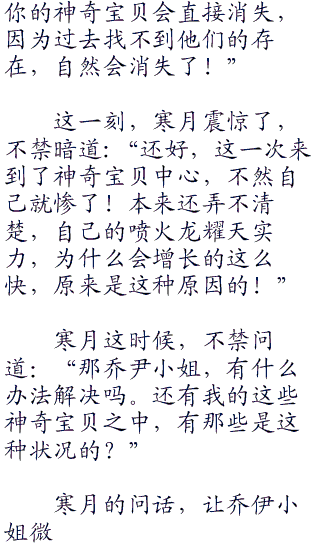 你的神奇宝贝会直接消失，
因为过去找不到他们的存
在，自然会消失了！”
这一刻，寒月震惊了，
不禁暗道：“还好，这一次来
到了神奇宝贝中心，不然自
己就惨了！本来还弄不清
楚，自己的喷火龙耀天实
力，为什么会增长的这么
快，原来是这种原因的！”
寒月这时候，不禁问
道：“那乔尹小姐，有什么
办法解决吗。还有我的这些
神奇宝贝之中，有那些是这
种状况的？”
寒月的问话，让乔伊小
姐微